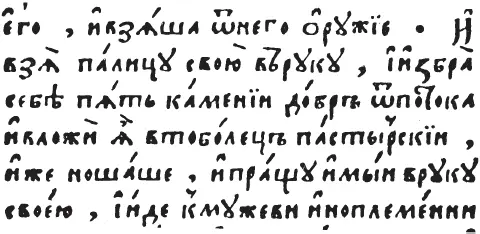 е҆го̀ , и҆взѧ́ша ѿнего ѻ҆рꙋ́жїе · И҆
взѧ̀ па́лицꙋ свою̀ въ́рꙋкꙋ , и҆и҆збра̀
себѣ̀ пѧ́ть ка́менїи до́бръ ѿпото́ка
и҆вложѝ ѧ҆̀ втобо́лецъ па́стырскїи ,
и҆же ноша́ше , и҆пра́щꙋ и҆мы́и врꙋкꙋ
свое́ю , і҆и́де кмꙋ́жеви и҆ноплеме́нни